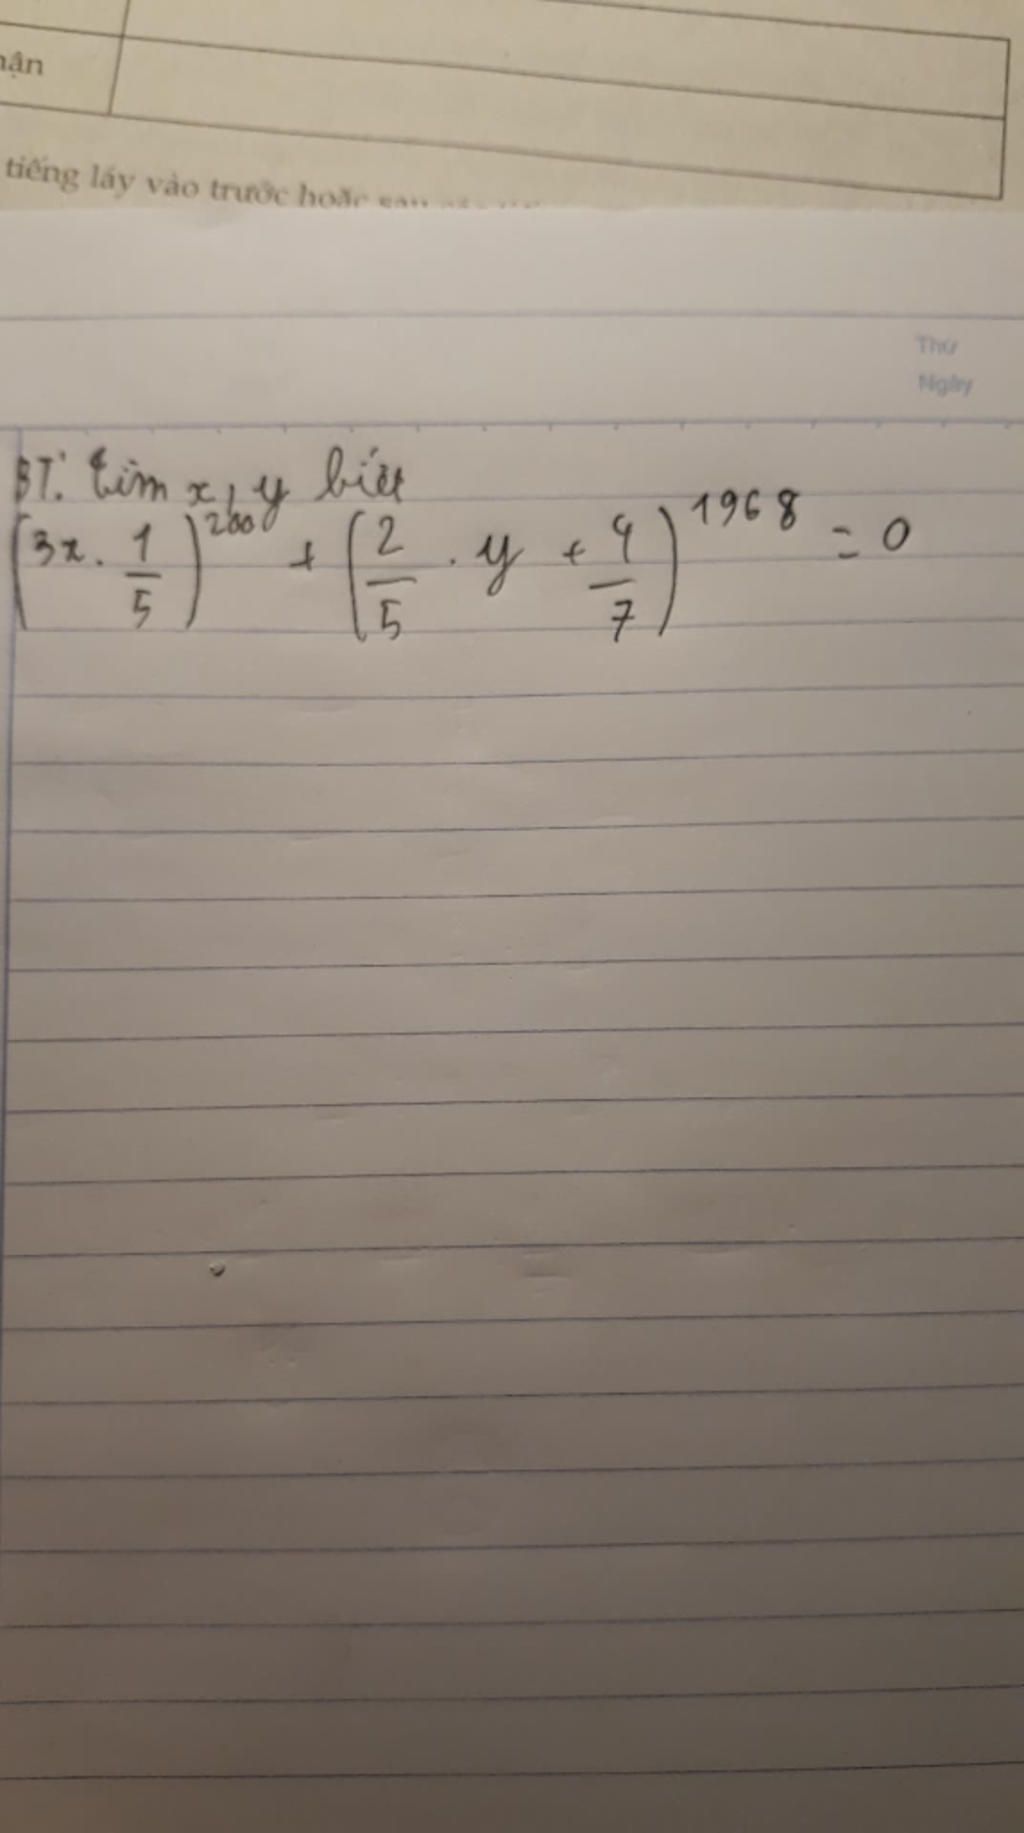 ận
tiếng láy vào trước hoặc sau
Thứ
Ngày
BT: tìm x, y biết
(3x . 1/5)^200 + (2/5 . y + 4/7)^1968 = 0